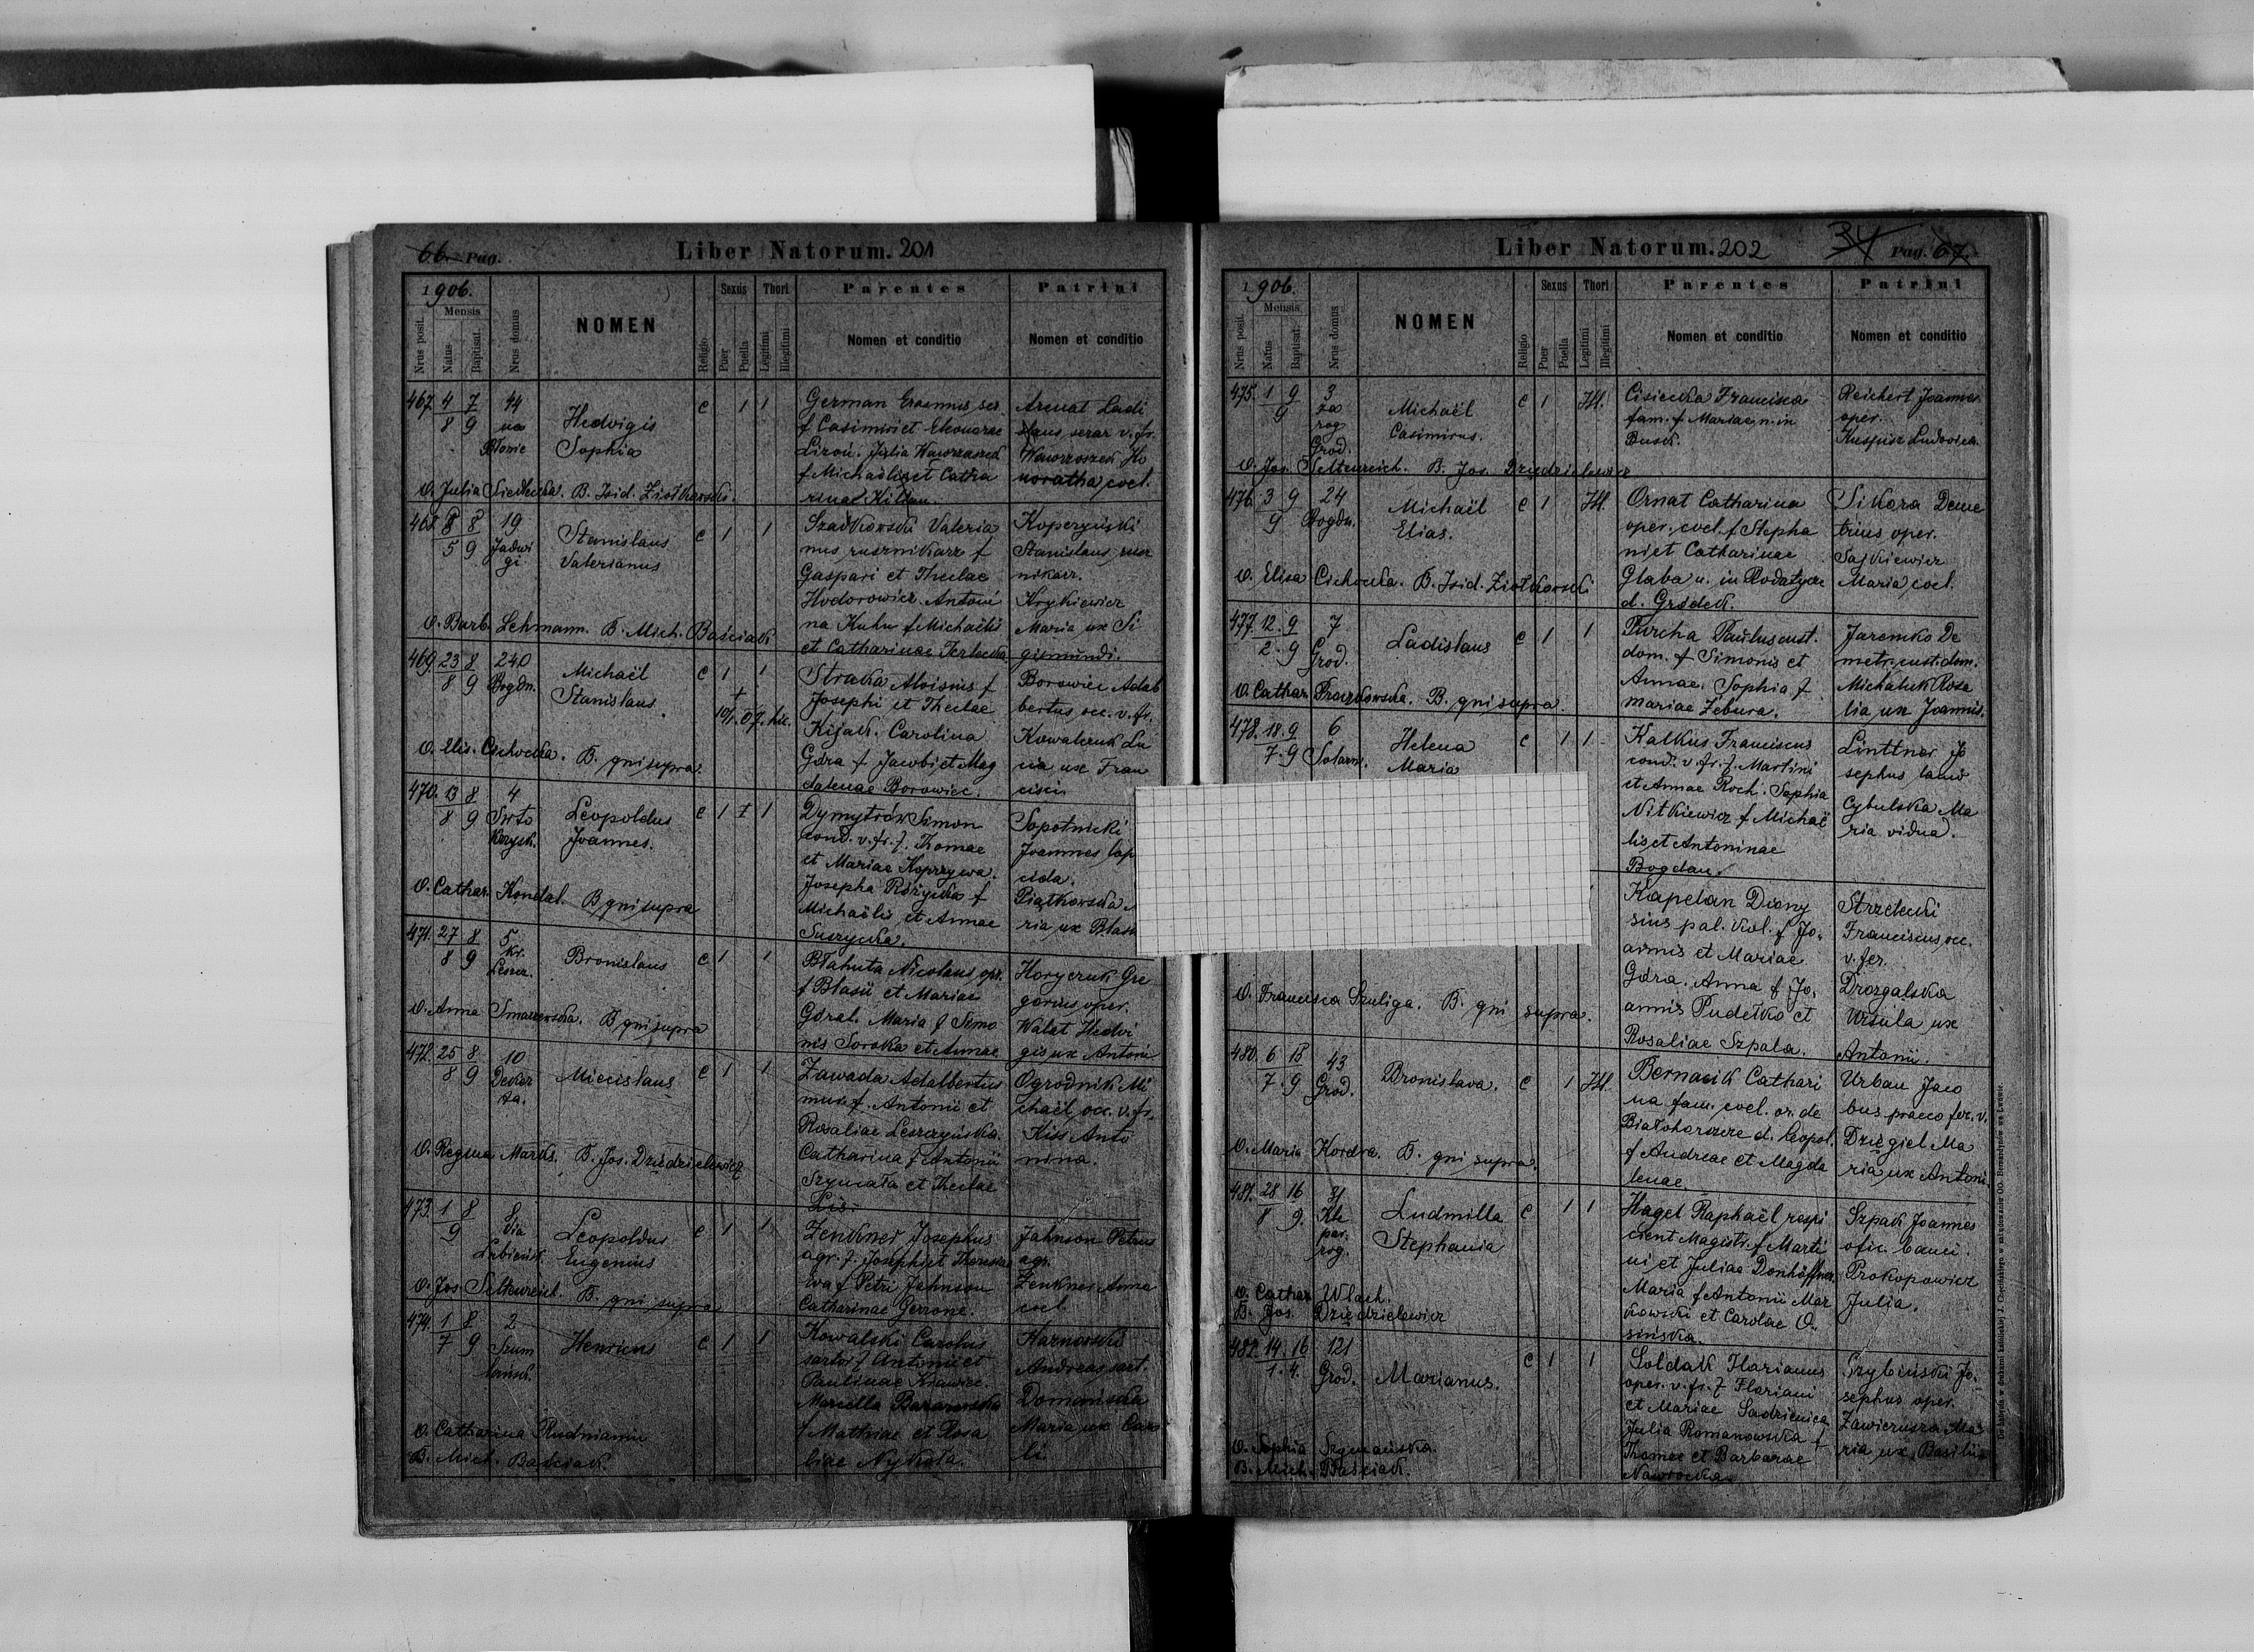 66. Pag. Liber Natorum. 201
1906.
Mensis
Nrus posit.
Natus
Baptisat.
Nrus domus
NOMEN
Religio
Sexus
Puer
Puella
Thori
Legitimi
Illegitimi
Parentes
Nomen et conditio
Patrini
Nomen et conditio
467. 4 7 44
8 9 na
Błonie
Hedvigis
Sophia
C 1 1
German Erasmus ser
f Casimiri et Eleonorae
Liroń. Julia Wawrzaszek
f Michaëlis et Catha
rinae Kiltan.
Arenat Ladi
slaus serar v. fr.
Wawrzoszek Ho
noratha coel.
O. Julia Siedlecka. B. Isid. Ziołkowski.
468. 8 8 19
5 9 Jadwi
gi
Stanislaus
Valerianus
C 1 1
Szadkowski Valeria
nus rusznikarz f
Gaspari et Theclae
Hodorowicz. Antoni
na Kuhn f Michaëlis
et Catharinae Terlecka.
Koperyński
Stanislaus rusz
nikarz.
Krykiewicz
Maria ux Si
gismundi.
O. Barb. Lehmann. B. Mich. Baściak
469. 23 8 240
8 9 Bogdn.
Michaël
Stanislaus.
C 1 1
Straka Aloisius f
Josephi et Theclae
Kijak. Carolina
Góra f Jacobi et Mag
dalenae Borowiec.
Borowiec Adal
bertus occ. v. fr.
Kowalczuk Lu
cia ux Fran
cisci
O. Elis. Cichocka. B. qui supra.
470. 13 8 4
8 9 Swto
krzysk.
Leopoldus
Joannes.
C 1 1
Dymytrów Simon
cond. v. fr. f. Thomae
et Mariae Koprzywa.
Josepha Różycka f
Michaëlis et Annae
Suszycka.
Sopotnicki
Joannes lap
cida.
Piątkowska
ria ux Blasii
O. Cathar. Kondal. B. qui supra
471. 27 8 5
8 9 Kr.
Leszcz.
Bronislaus
C 1 1
Błahuta Nicolaus opr.
f Blasii et Mariae
Góral. Maria f Simo
nis Soroka et Annae
Horyczuk Gre
gorius oper.
Walat Hedvi
gis ux Antoni
O. Anna Smaczewska. B. qui supra
472. 25 8 10
8 9 Decker
ta.
Miecislaus
C 1 1
Zawada Adalbertus
mur. f. Antonii et
Rosaliae Leszczyńska.
Catharina f Antonii
Szymała et Theclae
Lis.
Ogrodnik Mi
chaël occ. v. fr.
Kiss Anto
nina.
O. Regina Marks. B. Jos. Dziędzielewicz
473. 1 8 8
9 Via
Lubieńsk.
Leopoldus
Eugenius
C 1 1
Zenkner Josephus
agr. f. Josephi et Theresiae
Eva f Petri Jahnson
Catharinae Gerrone.
Jahnson Petrus
agr.
Zenkner Anna
coel.
O. Jos. Seltenreich. B. qui supra
474. 1 8 2
7 9 Szum
lańsk.
Henricus
C 1 1
Kowalski Carolus
sartor f Antonii et
Paulinae Krawiec.
Mariella Baranowska
f Mathiae et Rosa
liae Nykoła.
Karnowski
Andreas sart.
Domańska
Maria ux Caro
li
O. Catharina Rudnianin
B. Mich. Baściak.
Liber Natorum. 202 34 Pag. 67.
1906.
Mensis
Nrus posit.
Natus
Baptisat.
Nrus domus
NOMEN
Religio
Sexus
Puer
Puella
Thori
Legitimi
Illegitimi
Parentes
Nomen et conditio
Patrini
Nomen et conditio
475. 1 9 3
9 za
rog
Grod.
Michaël
Casimirus.
C 1 Ill.
Cisiecka Francisca
fam. f Mariae, n. in
Busk.
Reichert Joannes
oper.
Kuspisz Ludovica.
O. Jos. Seltenreich. B. Jos. Dziędzielewicz
476. 3 9 24
9 Bogdn.
Michaël
Elias.
C 1 Ill.
Ornat Catharina
oper. coel. f Stepha
ni et Catharinae
Głaba n. in Rodatycze
d. Gródek.
Sikora Deme
trius oper.
Sajkiewicz
Maria coel.
O. Elisa Cichocka. B. Isid. Ziołkowski
477. 12 9 7
2. 9 Grod.
Ladislaus
C 1 1
Purcha Paulus cust.
dom. f Simonis et
Annae. Sophia f
Mariae Zebura.
Jaremko De
metr. cust. dom.
Michaluk Rosa
lia ux Joannis.
O. Cathar. B. qui supra.
478. 18. 9 6
7. 9 Solarn.
Helena
Maria
C 1 1
Kalkus Franciscus
cond. v. fr. f. Martini
et Annae Roch. Sophia
Nitkiewicz f Michaë
lis et Antoninae
Bogdan.
Linttner Jo
sephus lanio
Cybulska Ma
ria vidua.
Kapelan Diony
sius pal. kol. f Jo.
annis et Mariae
Góra. Anna f Jo.
annis Pudełko et
Rosaliae Szpala.
Strzelecki
Franciscus, occ.
v. fer.
Drozgalska
Ursula ux
Antonii.
O. Francisca Szuliga. B. qui supra.
480. 6 13 43
7. 9 Grod.
Bronislava.
C 1 Ill.
Bernacik Cathari
na fam. coel. or. de
Białohorszcze d. Leopol.
f Andreae et Magda
lenae.
Urban Jaco
bus praeco fer. v.
Dzięgiel Ma
ria ux Antoni.
O. Maria Kordva. B. qui supra.
481. 28 16 31
8 9. Kle
par.
rog.
Ludmilla
Stephania
C 1 1
Hagel Raphaël respi
cient Magistr. f Marti
ni et Juliae Donhöffner
Maria f Antonii Mar
kowski et Carolae O.
sińska.
Szpak Joannes
ofic. banci.
Prokopowicz
Julia.
O. Cathar. Wlach.
B. Jos. Dziędzielewicz
482. 14 16 121
1. 4. Grod.
Marianus.
C 1 1
Soldak Florianus
oper. v. fr. f Floriani
et Mariae Sadzienica
Julia Romanowska f
Thomae et Barbarae
Nawrocka.
Grybiński Jo.
sephus oper.
Zawierusza Ma
ria ux Basilii
O. Sophia Szymańska.
B. Mich. Baściak.